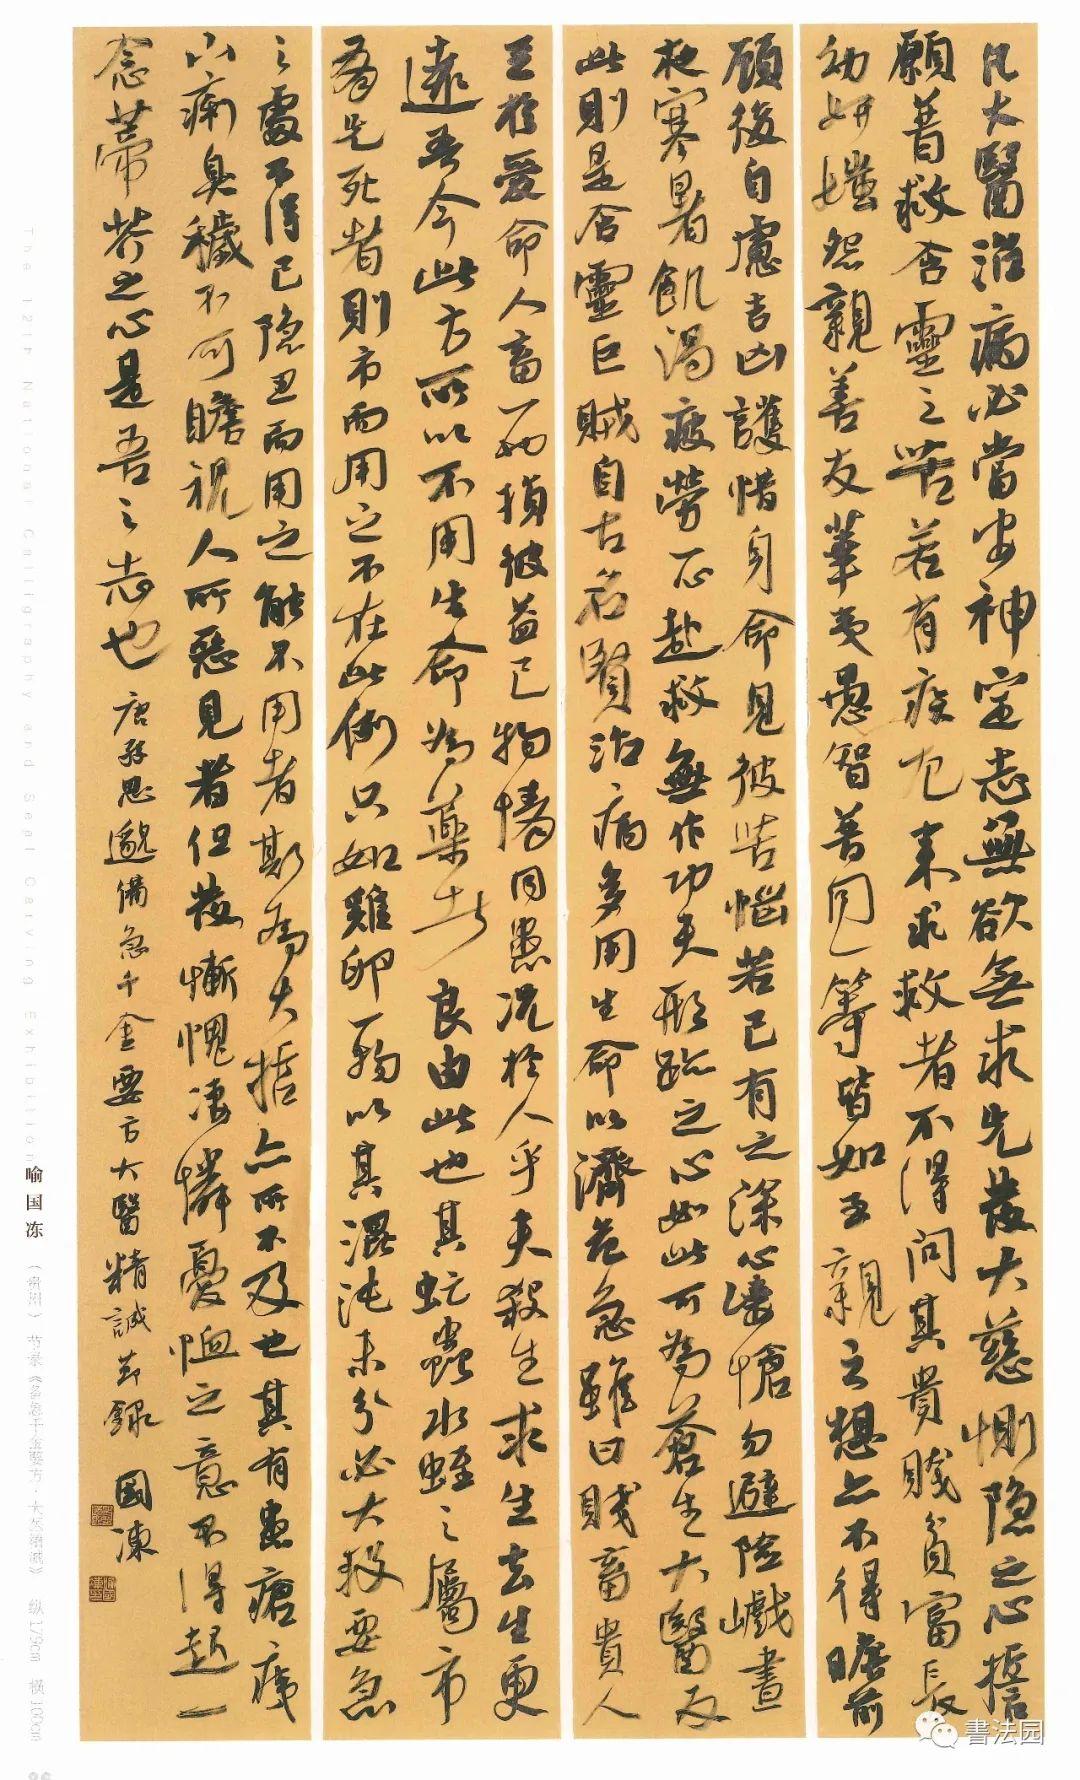 凡大醫治病必當安神定志無欲無求先發大慈惻隱之心誓
願普救含靈之苦若有疾厄來求救者不得問其貴賤貧富長
幼妍媸怨親善友華夷愚智普同一等皆如至親之想亦不得瞻前
顧後自慮吉凶護惜身命見彼苦惱若己有之深心悽愴勿避險巇晝
夜寒暑飢渴疲勞一心赴救無作功夫形跡之心如此可為蒼生大醫反
此則是含靈巨賊自古名賢治病多用生命以濟危急雖曰賤畜貴人
至於愛命人畜一也損彼益己物情同患況於人乎夫殺生求生去生更
遠吾今此方所以不用生命為藥者良由此也其虻蟲水蛭之屬市
有先死者則市而用之不在此例只如雞卵一物以其混沌未分必大段要急
之處不得已隱忍而用之能不用者斯為大哲亦所不及也其有患瘡痍
下痢臭穢不可瞻視人所惡見者但發慚愧悽憐憂恤之意不得起一
念蒂芥之心是吾之志也 唐孫思邈備急千金要方大醫精誠節錄 國凍
The 12th National Calligraphy and Seal Carving Exhibition
喻国冻 （贵州） 节录《备急千金要方·大医精诚》 纵179cm 横100cm
書法园